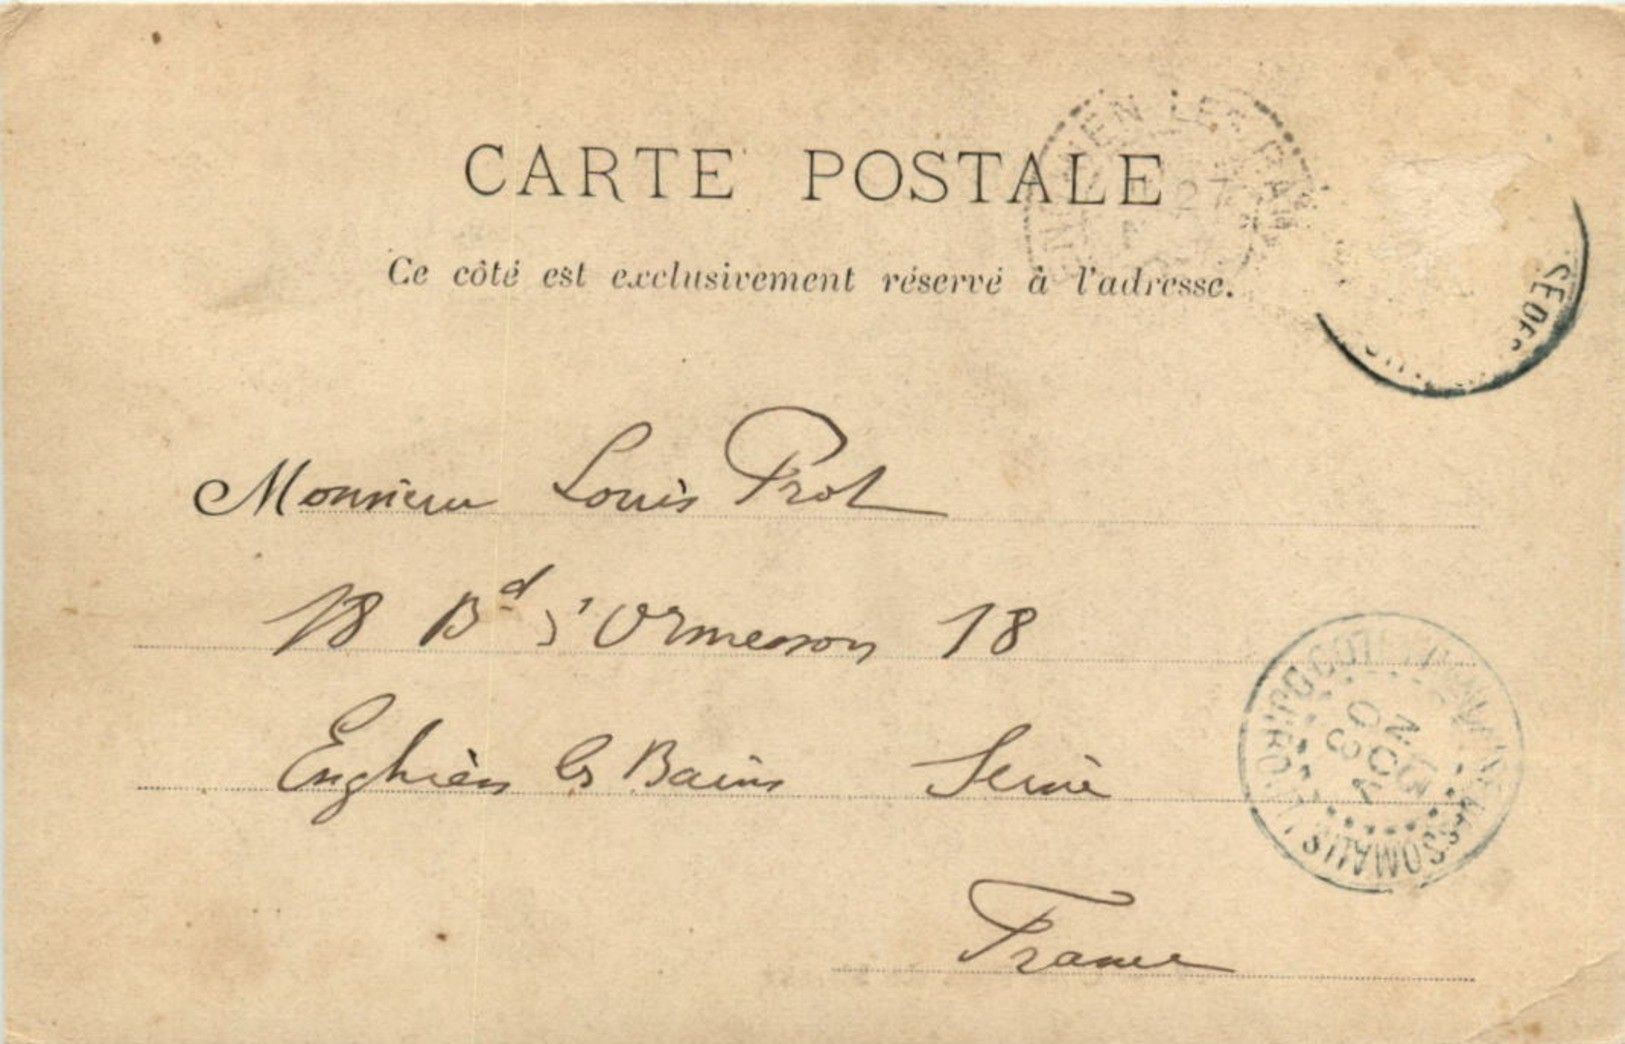 CARTE POSTALE
Ce côté est exclusivement réservé à l'adresse.
ENGHIEN LES BAINS
27
SE DES
Monsieur Louis Prot
18 Bd d'Ormesson 18
Enghien les Bains Seine
France
COTE FRANÇAISE DES SOMALIS
AOUT
03